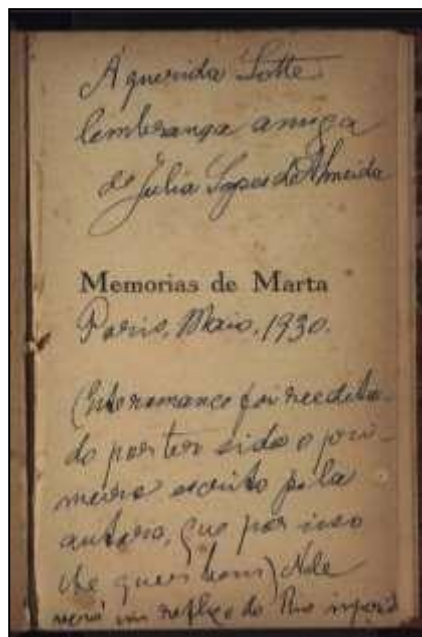 Á querida Lotte
lembrança amiga
de Julia Lopes de Almeida
Memorias de Marta
Paris, Maio, 1930.
(Este romance foi reedita-
do por ter sido o pri-
meiro escripto pela
autora, que por isso
lhe quer bem) Nele
verá um reflexo do Rio